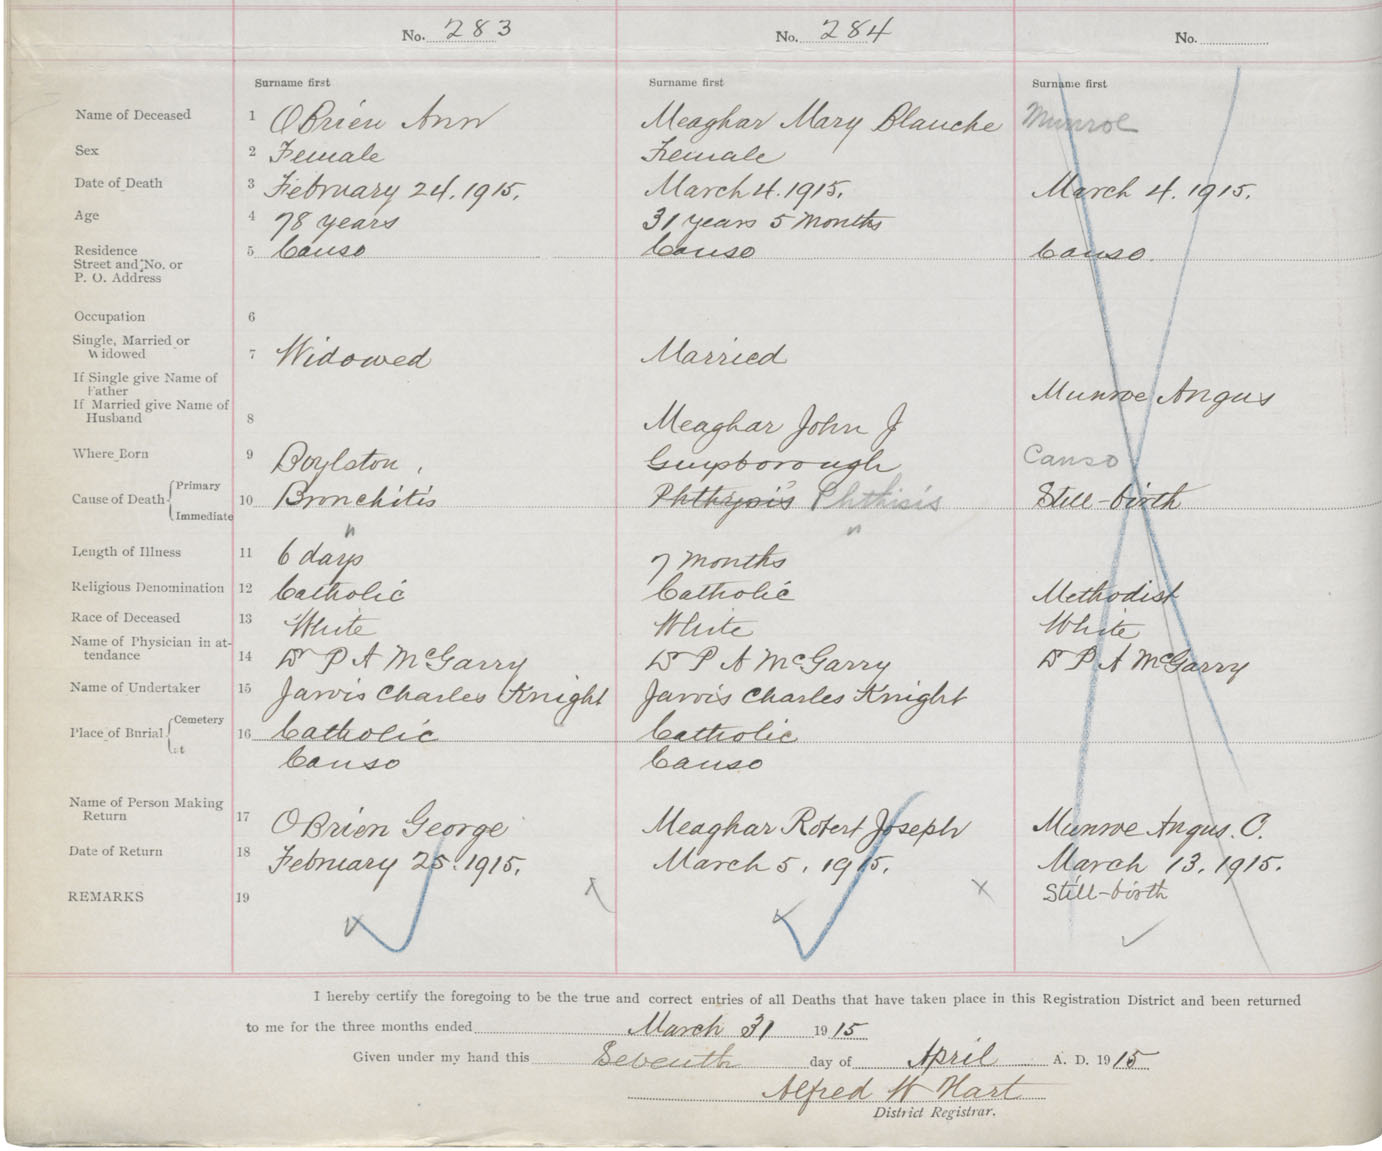 No. 283 No. 284 No.
Surname first Surname first Surname first
Name of Deceased 1 OBrien Ann Meaghar Mary Blanche Munroe
Sex 2 Female Female
Date of Death 3 February 24. 1915. March 4. 1915. March 4. 1915.
Age 4 78 years 31 years 5 months
Residence 5 Canso Canso Canso.
Street and No. or
P. O. Address
Occupation 6
Single, Married or
Widowed 7 Widowed Married
If Single give Name of
Father Munroe Angus
If Married give Name of
Husband 8 Meaghar John J
Where Born 9 Boylston, Guysborough Canso
Cause of Death { Primary 10 Bronchitis Phthysis Phthisis Still-birth
Immediate " "
Length of Illness 11 6 days 7 months
Religious Denomination 12 Catholic Catholic Methodist
Race of Deceased 13 White White White
Name of Physician in at-
tendance 14 Dr P A McGarry Dr P A McGarry Dr P A McGarry
Name of Undertaker 15 Jarvis Charles Knight Jarvis Charles Knight
Place of Burial { Cemetery 16 Catholic Catholic
Lot Canso Canso
Name of Person Making
Return 17 OBrien George Meaghar Robert Joseph Munroe Angus. O.
Date of Return 18 February 25. 1915. March 5. 1915. March 13. 1915.
REMARKS 19 Still-birth
I hereby certify the foregoing to be the true and correct entries of all Deaths that have taken place in this Registration District and been returned
to me for the three months ended March 31 1915
Given under my hand this Seventh day of April A. D. 1915
Alfred W Hart
District Registrar.